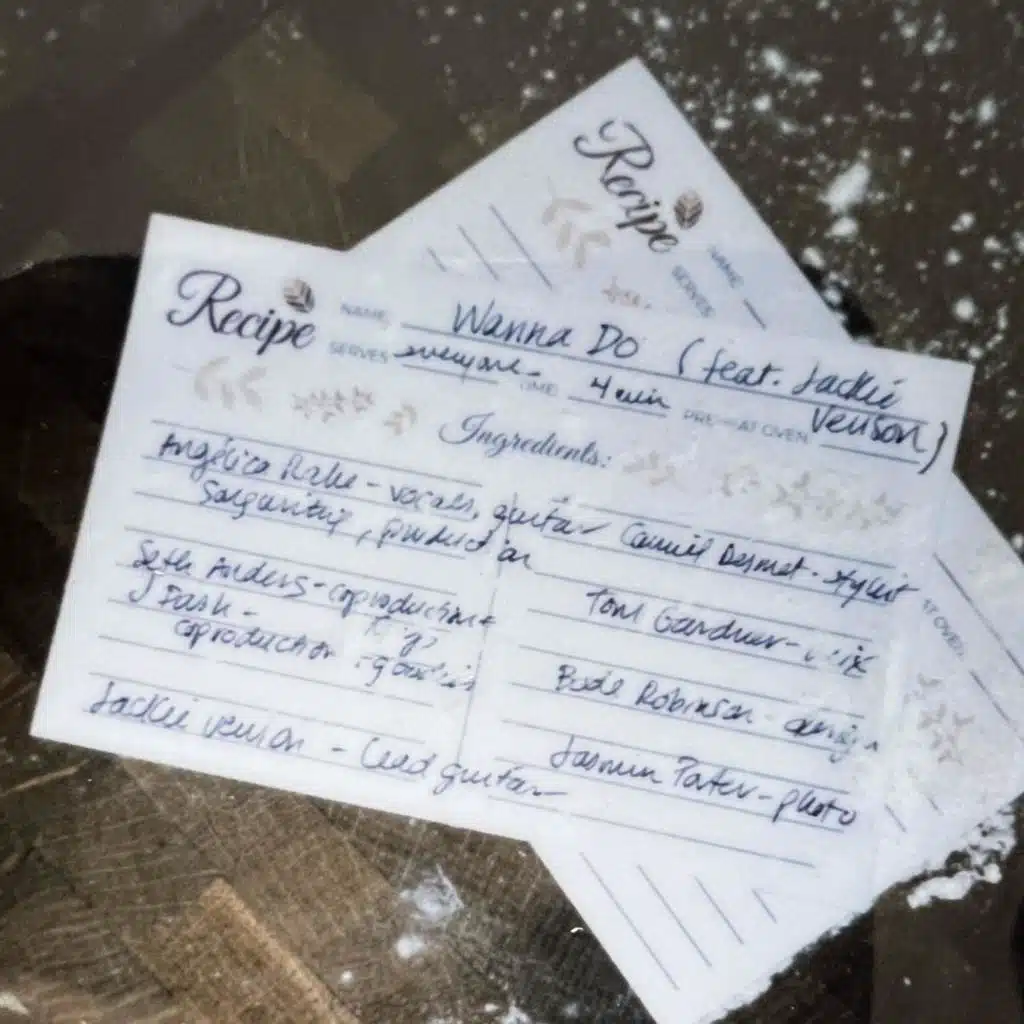 Recipe
NAME
SERVES
Recipe
NAME Wanna Do (feat. Jackie
Venson)
SERVES everyone TIME 4 min PREHEAT OVEN
Ingredients:
Angélica Rahe - vocals, guitar
Songwriting, production
Seth Anders - coproduction +
J Dash -
coproduction
Jackie Venson - lead guitar
Desmet - stylist
Tom Gardner - mix
Bode Robinson - design
Jasmin Porter - photo
AT OVEN